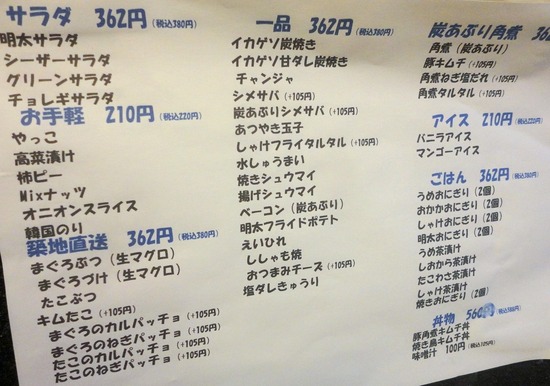 サラダ 362円(税込380円)
明太サラダ
シーザーサラダ
グリーンサラダ
チョレギサラダ
お手軽 210円(税込220円)
やっこ
高菜漬け
柿ピー
Mixナッツ
オニオンスライス
韓国のり
築地直送 362円(税込380円)
まぐろぶつ(生マグロ)
まぐろづけ(生マグロ)
たこぶつ
キムたこ(+105円)
まぐろのカルパッチョ(+105円)
まぐろのねぎパッチョ(+105円)
たこのカルパッチョ(+105円)
たこのねぎパッチョ(+105円)
一品 362円(税込380円)
イカゲソ炭焼き
イカゲソ甘ダレ炭焼き
チャンジャ
シメサバ(+105円)
炭あぶりシメサバ(+105円)
あつやき玉子
しゃけフライタルタル(+105円)
水しゅうまい
焼きシュウマイ
揚げシュウマイ
ベーコン(炭あぶり)
明太フライドポテト
えいひれ
ししゃも焼
おつまみチーズ(+105円)
塩ダレきゅうり
炭あぶり角煮 362
角煮(炭あぶり)
豚キムチ(+105円)
角煮ねぎ塩だれ(+105円)
角煮タルタル(+105円)
アイス 210円(税込220円)
バニラアイス
マンゴーアイス
ごはん 362円(税込380円)
うめおにぎり(2個)
おかかおにぎり(2個)
しゃけおにぎり(2個)
明太おにぎり(2個)
うめ茶漬け
しおから茶漬け
たこわさ茶漬け
しゃけ茶漬け
焼きおにぎり(2個)
丼物 560円
豚角煮キムチ丼
焼き鳥キムチ丼
味噌汁 100円(税込105円)